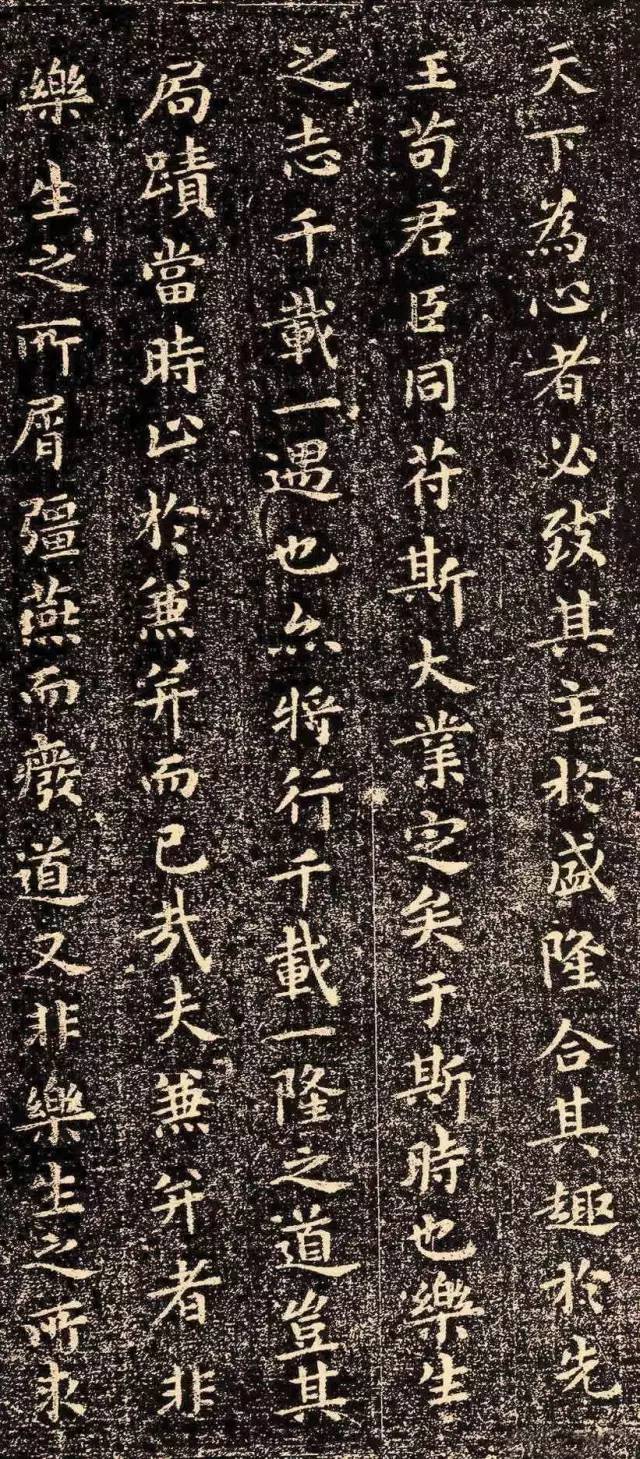 天下為心者必致其主於盛隆合其趣於先
王苟君臣同符斯大業定矣于斯時也樂生
之志千載一遇也亦將行千載一隆之道豈其
局蹟當時止於兼并而已哉夫兼并者非
樂生之所屑彊燕而癈道又非樂生之所求